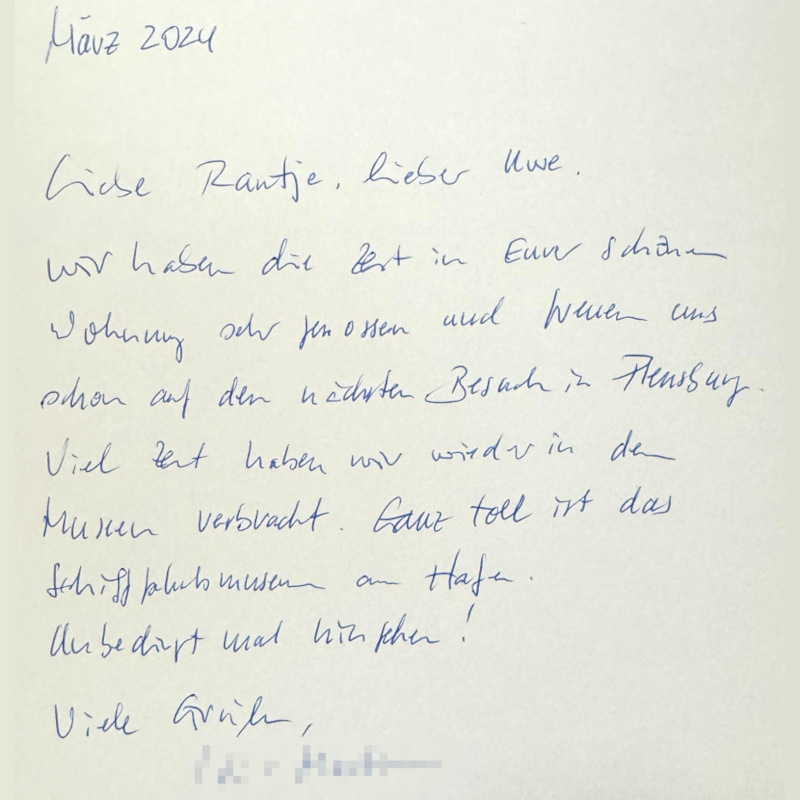 März 2024
Liebe Rantje, lieber Uwe,
wir haben die Zeit in Eurer schönen
Wohnung sehr genossen und freuen uns
schon auf den nächsten Besuch in Flensburg.
Viel Zeit haben wir wieder in den
Museen verbracht. Ganz toll ist das
Schifffahrtsmuseum am Hafen.
Unbedingt mal hingehen!
Viele Grüße,